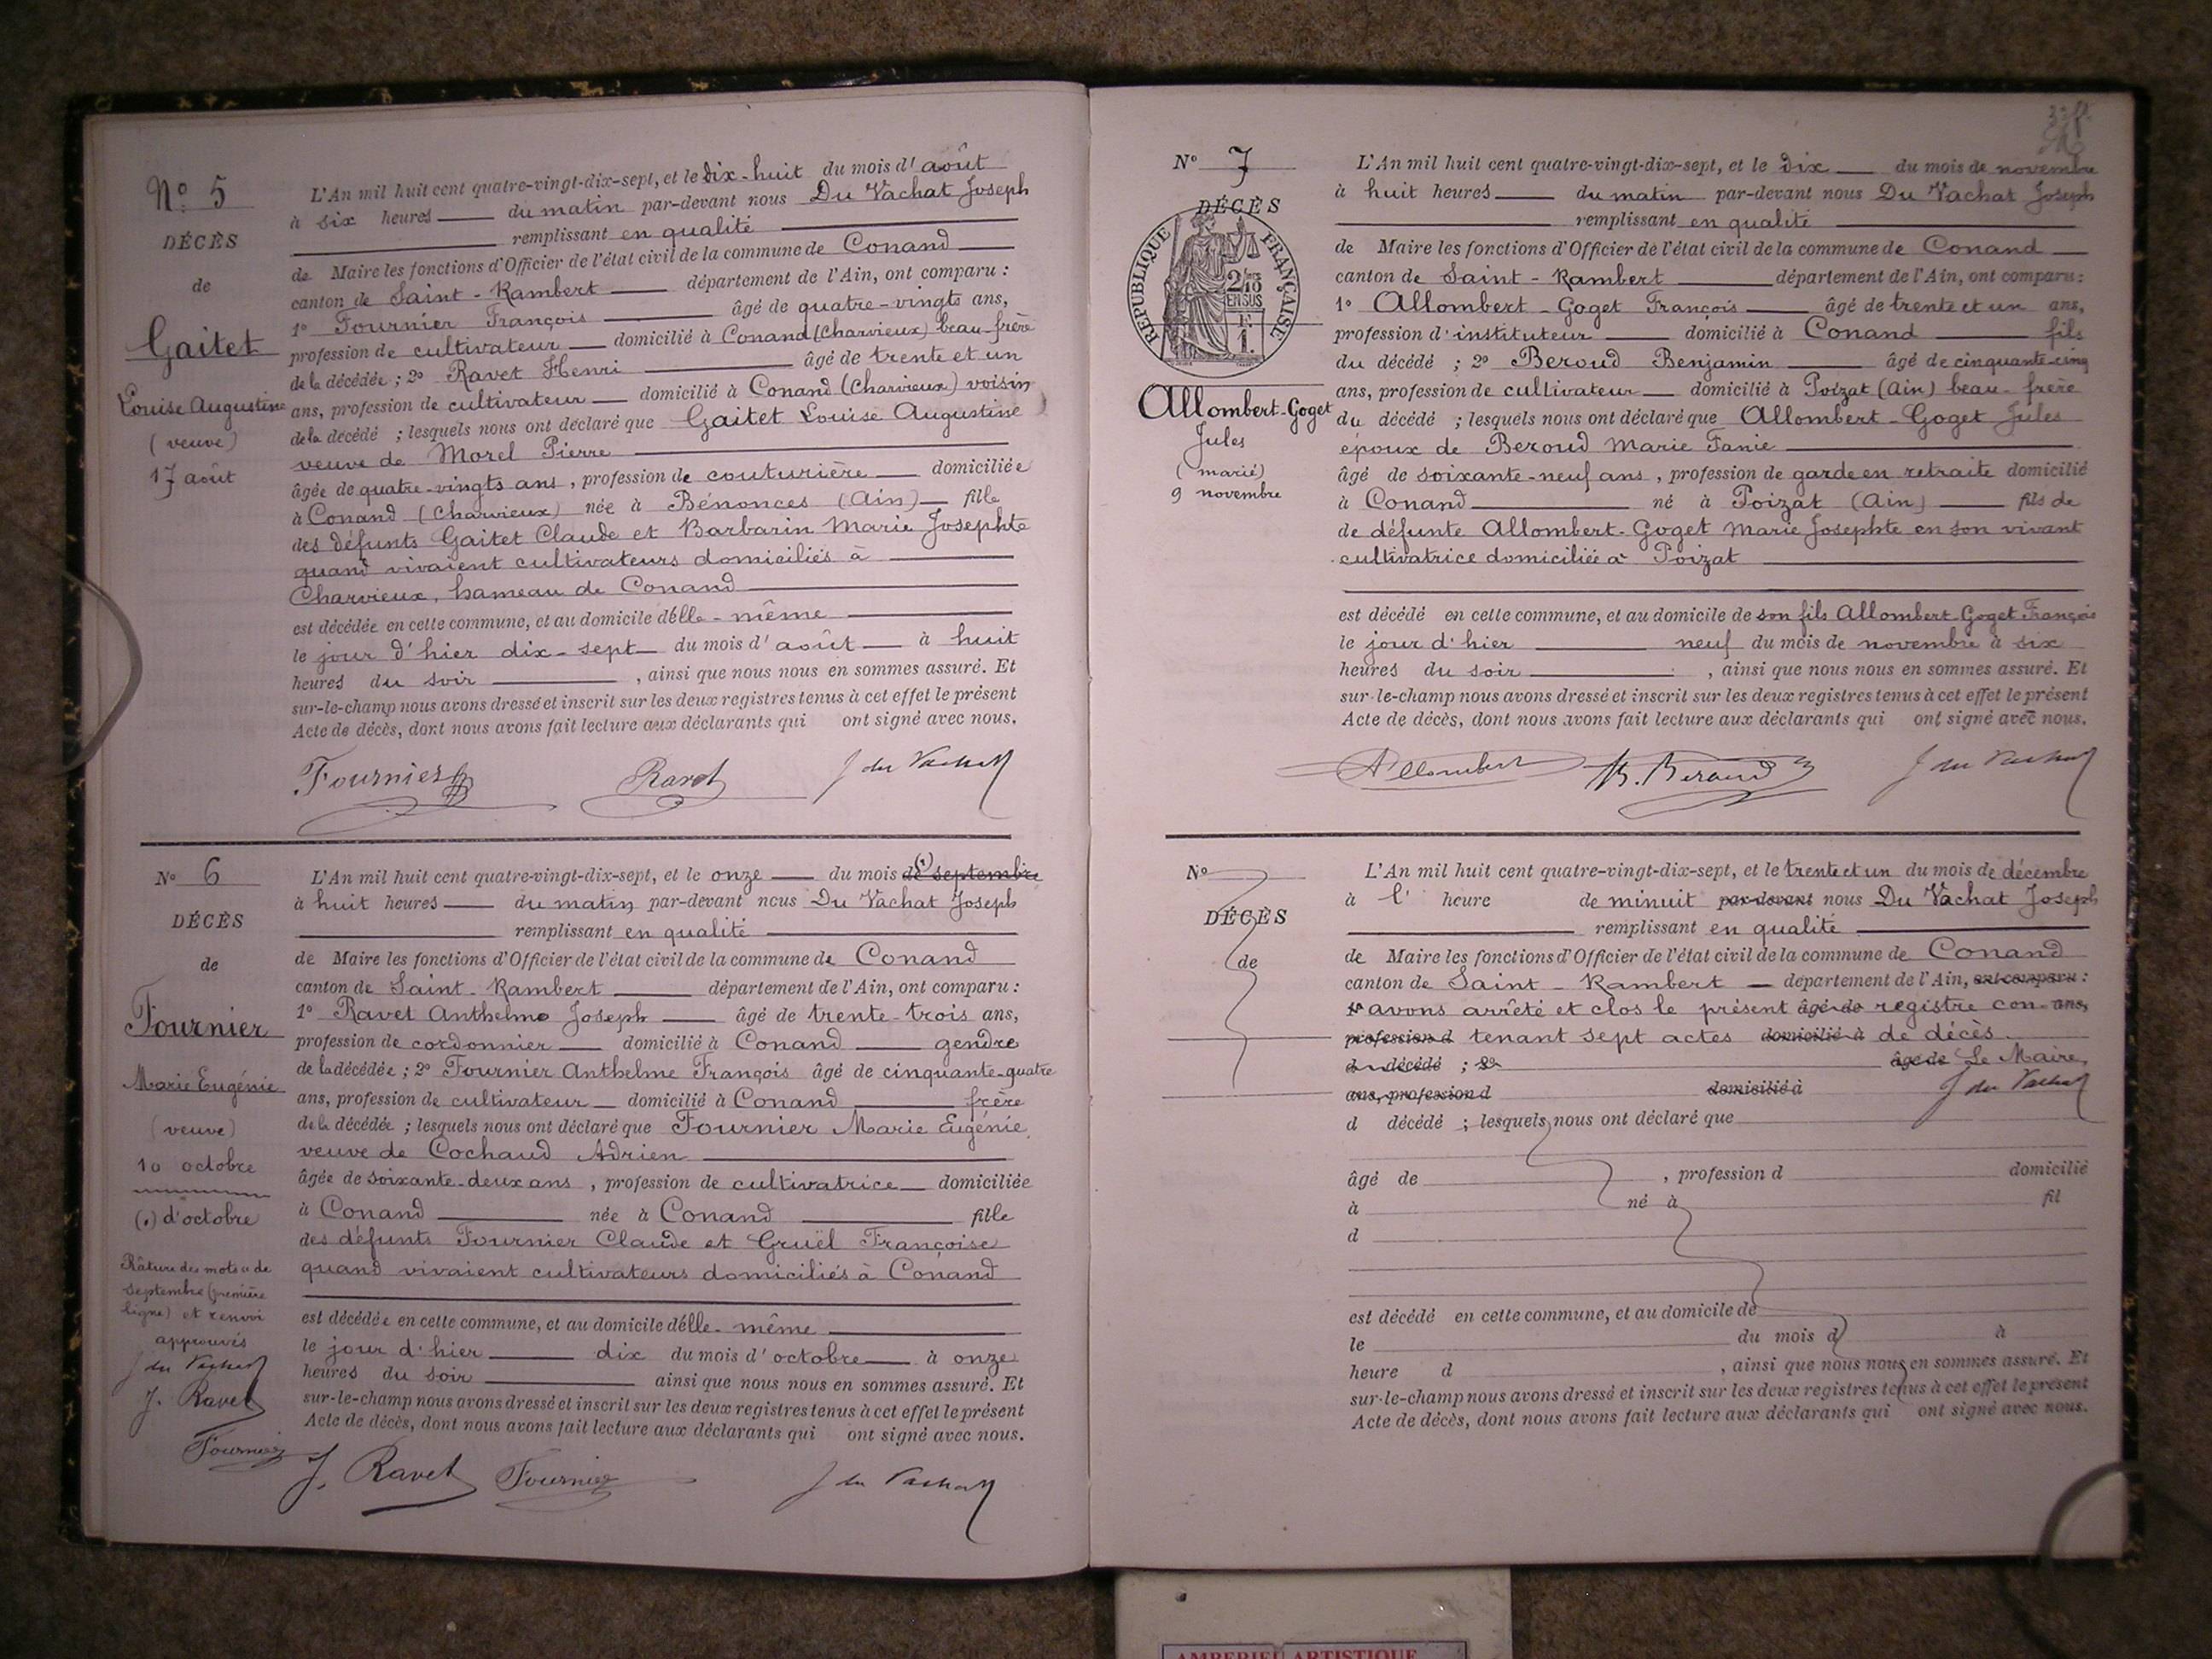 N° 5
DÉCÈS
de
Gaitet
Louise Augustine
(veuve)
17 août
L'An mil huit cent quatre-vingt-dix-sept, et le dix-huit du mois d'août
à six heures du matin par-devant nous Du Vachat Joseph
remplissant en qualité
de Maire les fonctions d'Officier de l'état civil de la commune de Conand
canton de Saint-Rambert département de l'Ain, ont comparu :
1° Fournier François âgé de quatre-vingts ans,
profession de cultivateur domicilié à Conand (Charvieux) beau-frère
de la décédée ; 2° Ravet Henri âgé de trente et un
ans, profession de cultivateur domicilié à Conand (Charvieux) voisin
de la décédé ; lesquels nous ont déclaré que Gaitet Louise Augustine
veuve de Morel Pierre
âgée de quatre-vingts ans, profession de couturière domiciliée
à Conand (Charvieux) née à Bénonces (Ain) fille
des défunts Gaitet Claude et Barbarin Marie Josephte
quand vivaient cultivateurs domiciliés à
Charvieux, hameau de Conand
est décédée en cette commune, et au domicile d'élle-même
le jour d'hier dix-sept du mois d'août à huit
heures du soir , ainsi que nous nous en sommes assuré. Et
sur-le-champ nous avons dressé et inscrit sur les deux registres tenus à cet effet le présent
Acte de décès, dont nous avons fait lecture aux déclarants qui ont signé avec nous.
Fournier Ravet J du Vachat
N° 6
DÉCÈS
de
Fournier
Marie Eugénie
(veuve)
10 octobre
(.) d'octobre
Râture des mots de
septembre (première
ligne) et renvoi
approuvés
J du Vachat
J. Ravet
Fournier
L'An mil huit cent quatre-vingt-dix-sept, et le onze du mois de (.) septembre
à huit heures du matin par-devant nous Du Vachat Joseph
remplissant en qualité
de Maire les fonctions d'Officier de l'état civil de la commune de Conand
canton de Saint-Rambert département de l'Ain, ont comparu :
1° Ravet Anthelme Joseph âgé de trente-trois ans,
profession de cordonnier domicilié à Conand gendre
de la décédée ; 2° Fournier Anthelme François âgé de cinquante-quatre
ans, profession de cultivateur domicilié à Conand frère
de la décédée ; lesquels nous ont déclaré que Fournier Marie Eugénie
veuve de Cochaud Adrien
âgée de soixante-deux ans , profession de cultivatrice domiciliée
à Conand née à Conand fille
des défunts Fournier Claude et Gruël Françoise
quand vivaient cultivateurs domiciliés à Conand
est décédée en cette commune, et au domicile d'élle-même
le jour d'hier dix du mois d'octobre à onze
heures du soir ainsi que nous nous en sommes assuré. Et
sur-le-champ nous avons dressé et inscrit sur les deux registres tenus à cet effet le présent
Acte de décès, dont nous avons fait lecture aux déclarants qui ont signé avec nous.
J. Ravet Fournier J du Vachat
N° 7
DÉCÈS
RÉPUBLIQUE FRANÇAISE
2/10
EN SUS
1F.
Allombert-Goget
Jules
(marié)
9 novembre
L'An mil huit cent quatre-vingt-dix-sept, et le dix du mois de novembre
à huit heures du matin par-devant nous Du Vachat Joseph
remplissant en qualité
de Maire les fonctions d'Officier de l'état civil de la commune de Conand
canton de Saint-Rambert département de l'Ain, ont comparu :
1° Allombert-Goget François âgé de trente et un ans,
profession d'instituteur domicilié à Conand fils
du décédé ; 2° Beroud Benjamin âgé de cinquante-cinq
ans, profession de cultivateur domicilié à Poizat (Ain) beau-frère
du décédé ; lesquels nous ont déclaré que Allombert-Goget Jules
époux de Beroud Marie Fanie
âgé de soixante-neuf ans , profession de garde en retraite domicilié
à Conand né à Poizat (Ain) fils de
de défunte Allombert-Goget Marie Josephte en son vivant
cultivatrice domiciliée à Poizat
est décédé en cette commune, et au domicile de son fils Allombert-Goget François
le jour d'hier neuf du mois de novembre à six
heures du soir , ainsi que nous nous en sommes assuré. Et
sur-le-champ nous avons dressé et inscrit sur les deux registres tenus à cet effet le présent
Acte de décès, dont nous avons fait lecture aux déclarants qui ont signé avec nous.
Allombert B. Beroud J du Vachat
N°
DÉCÈS
de
L'An mil huit cent quatre-vingt-dix-sept, et le trente et un du mois de décembre
à l' heure de minuit par-devant nous Du Vachat Joseph
remplissant en qualité
de Maire les fonctions d'Officier de l'état civil de la commune de Conand
canton de Saint-Rambert département de l'Ain, ont comparu :
1° avons arrêté et clos le présent âgé de registre con- ans,
profession d tenant sept actes domicilié à de décès
d décédé ; 2° âgé de Le Maire,
ans, profession d domicilié à J du Vachat
d décédé ; lesquels nous ont déclaré que
âgé de , profession d domicilié
à né à fil
d
est décédé en cette commune, et au domicile de
le du mois d à
heure d , ainsi que nous nous en sommes assuré. Et
sur-le-champ nous avons dressé et inscrit sur les deux registres tenus à cet effet le présent
Acte de décès, dont nous avons fait lecture aux déclarants qui ont signé avec nous.
AMBERIEU ARTISTIQUE